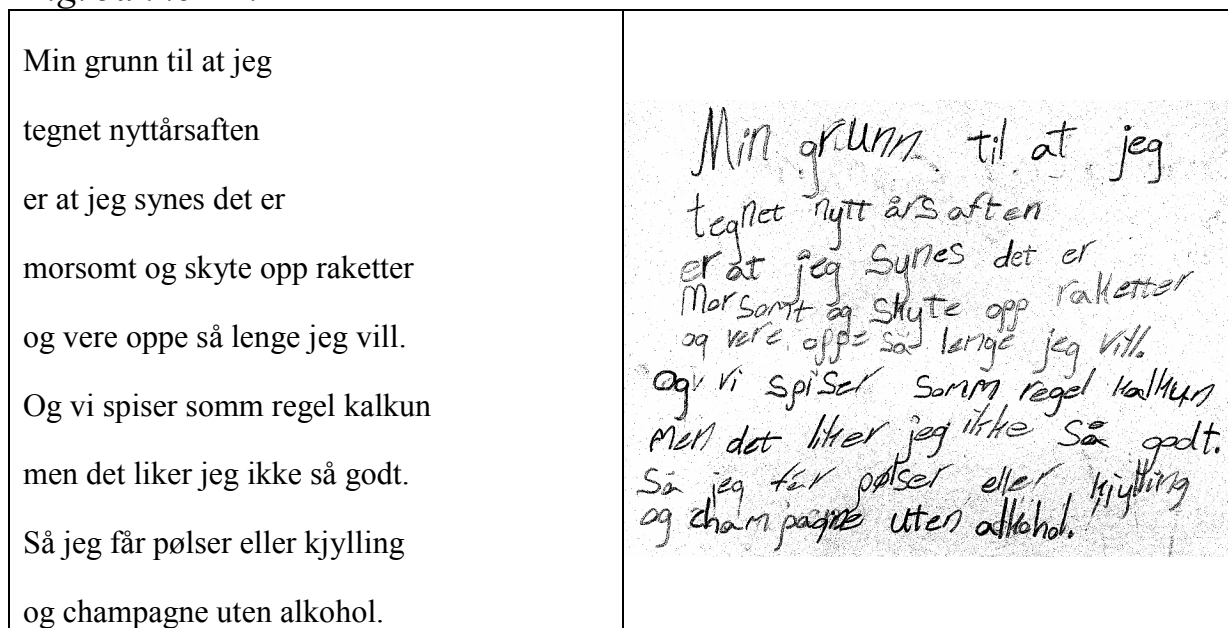 Min grunn til at jeg
tegnet nyttårsaften
er at jeg synes det er
morsomt og skyte opp raketter
og vere oppe så lenge jeg vill.
Og vi spiser somm regel kalkun
men det liker jeg ikke så godt.
Så jeg får pølser eller kjylling
og champagne uten alkohol.
Min grunn til at jeg
tegnet nytt års aften
er at jeg synes det er
morsomt og skyte opp raketter
og vere oppe så lenge jeg vill.
Og vi spiser somm regel kalkun
men det liker jeg ikke så godt.
Så jeg får pølser eller kjylling
og champagne uten alkohol.